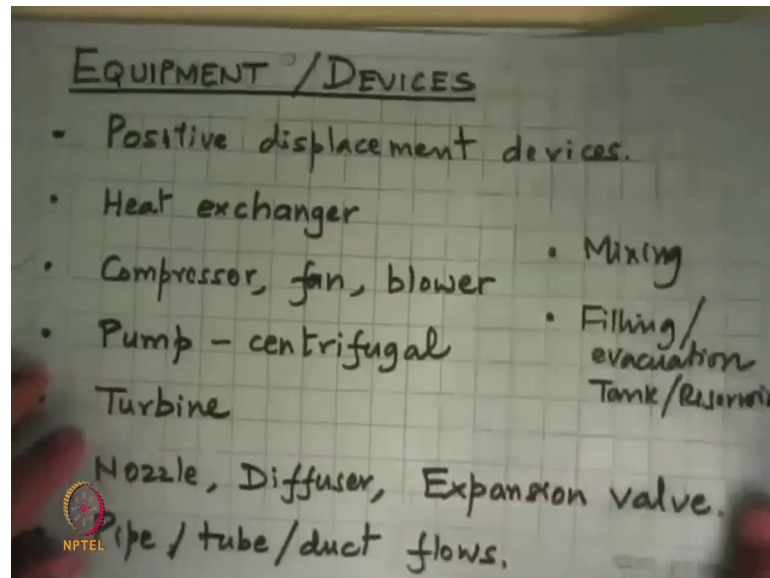 EQUIPMENT / DEVICES
• Positive displacement devices.
• Heat exchanger
• Compressor, fan, blower
• Pump - centrifugal
• Turbine
Nozzle, Diffuser, Expansion valve.
Pipe / tube / duct flows.
• Mixing
• Filling/
evacuation
Tank/Reservoir
NPTEL